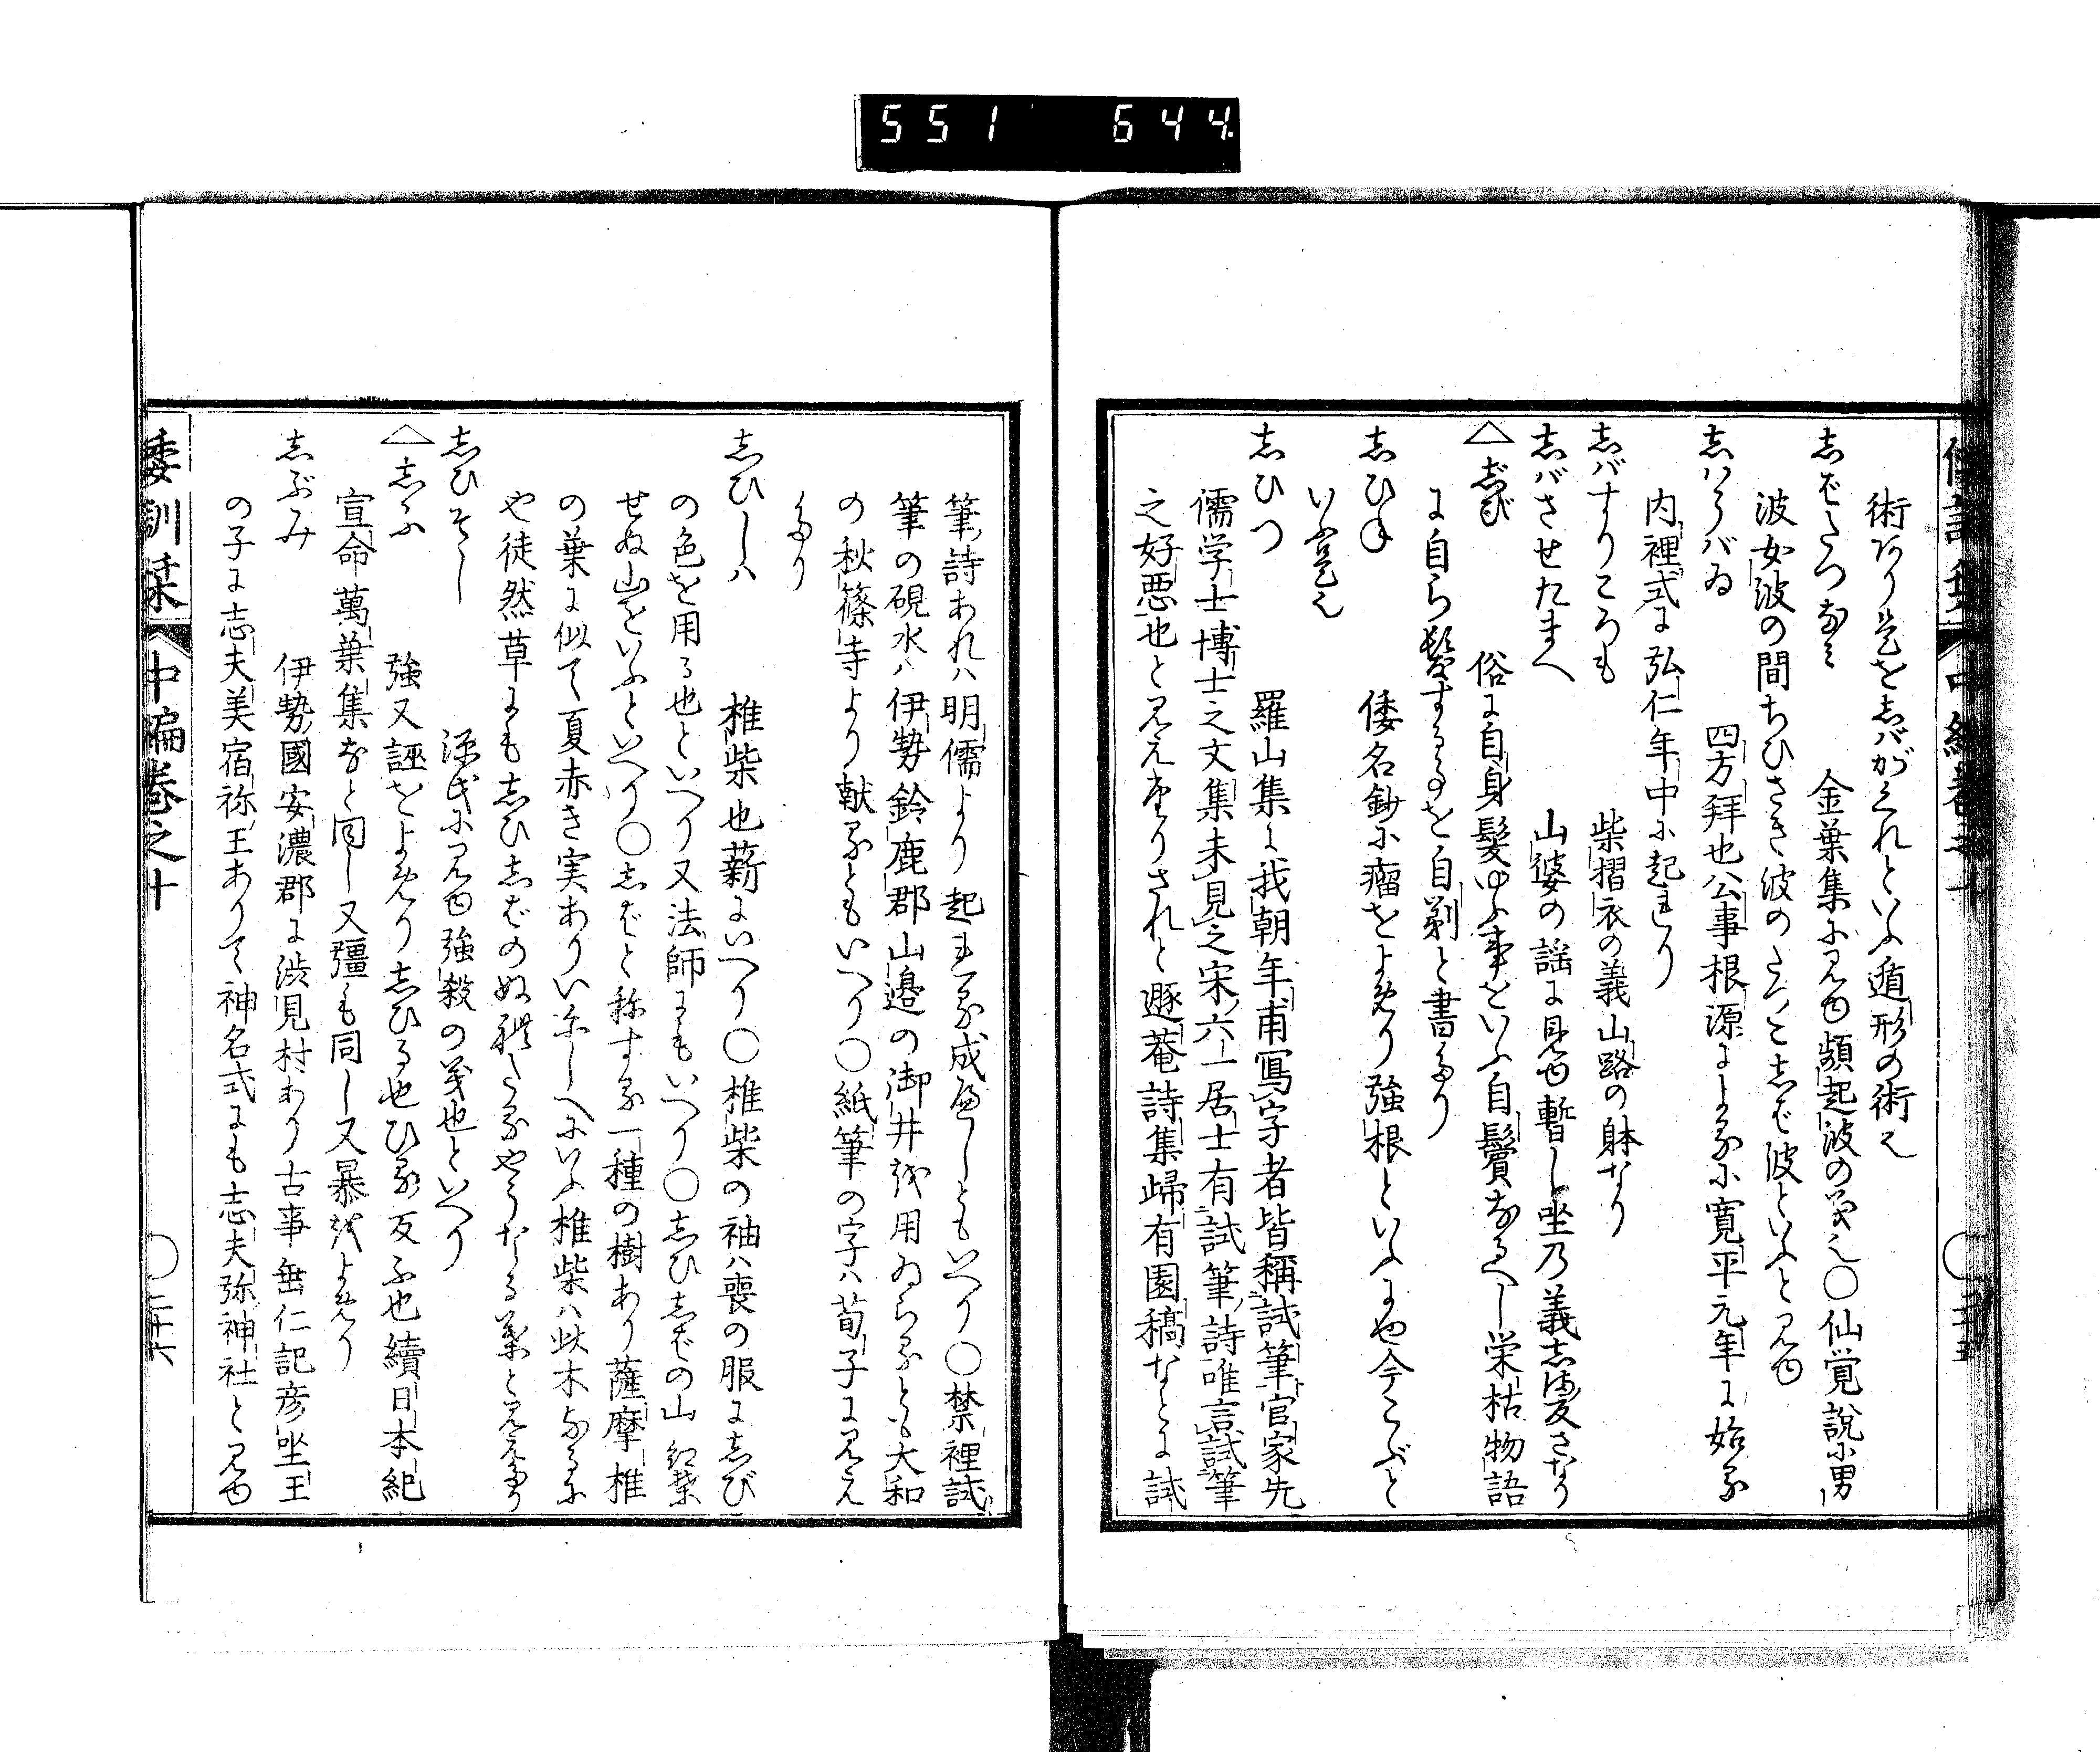 551 644
術あり是を志バがくれといふ遁形の術也
志ばたつなみ 金葉集に見ゆ頻起波の義也〇仙覚説に男
波女波の間ちひさき波のたつを志ば波といふと見ゆ
志はうバゐ 四方拜也公事根源によるに寛平元年に始る
内裡式に弘仁年中に起れり
志バすりころも 柴摺衣の義山路の躰なり
志バさせたまへ 山婆の謡に見ゆ暫し坐乃義志ま反さなり
△志び 俗に自身髪ゆふ事をいふ自鬢なるへし栄枯物語
に自ら髪するを自剃と書たり
志ひね 倭名鈔に瘤をよめり強根といふにや今こぶと
いふ是也
志ひつ 羅山集に我朝年甫写字者皆稱試筆官家先
儒学士博士之文集未見之宋六一居士有試筆詩唯言試筆
之好悪也と見えたりされと豚菴詩集帰有園稿なとに試
筆詩あれハ明儒より起れる成へしともいへり〇禁裡試
筆の硯水ハ伊勢鈴鹿郡山邉の御井を用ゐらるとも大和
の秋篠寺より献るともいへり〇紙筆の字ハ荀子に見え
たり
志ひしハ 椎柴也薪にいへり〇椎柴の袖ハ喪の服に志び
の色を用る也といへり又法師にもいへり〇志ひ志ばの山 紅葉
せぬ山をいふといへり〇志ばと称する一種の樹あり薩摩椎
の葉に似て夏赤き実ありいにしへにいふ椎柴ハ此木なるに
や徒然草にも志ひ志ばのぬれたるやうなる葉と見えたり
志ひそし 源氏に見ゆ強殺の義也といへり
△志ふ 強又誣をよめり志ひる也ひる反ふ也續日本紀
宣命萬葉集なと同し又彊も同し又暴をよめり
志ぶみ 伊勢國安濃郡に渋見村あり古事垂仁記彦坐王
の子に志夫美宿祢王ありて神名式にも志夫弥神社と見ゆ
倭訓栞 中編巻之十 〇二十六